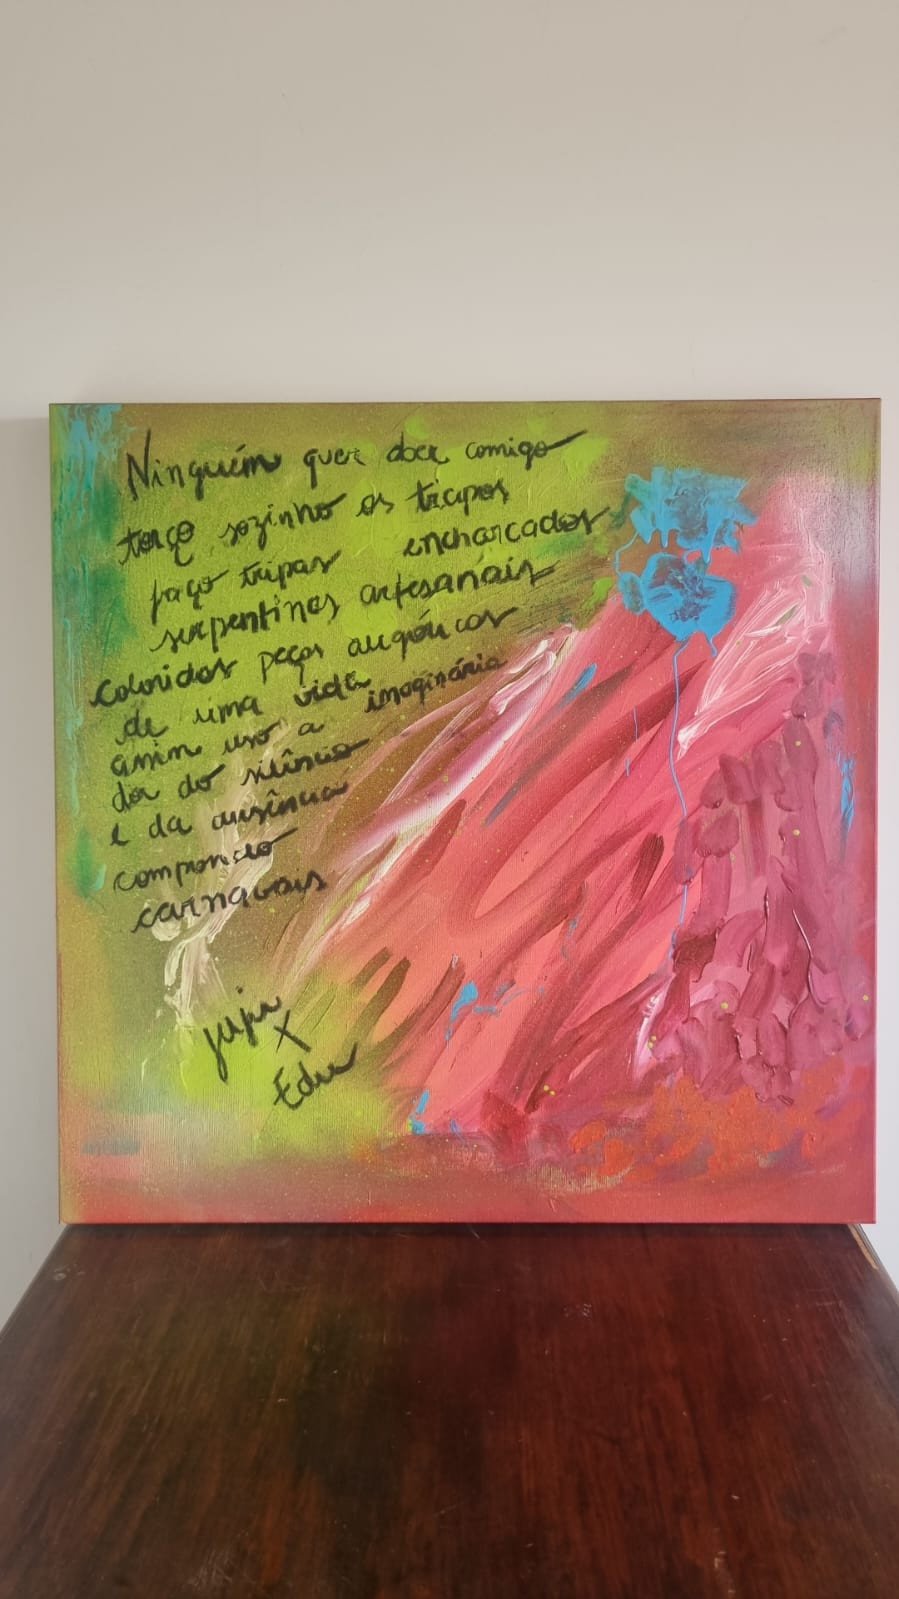 Ninguém quer doer comigo
torço sozinho os trapos
encharcados
faço tripas
serpentinas artesanais
coloridas peças
de uma vida imaginária
assim uso a
dor do silêncio
e da ausência
componho
carnavais
X
Edu